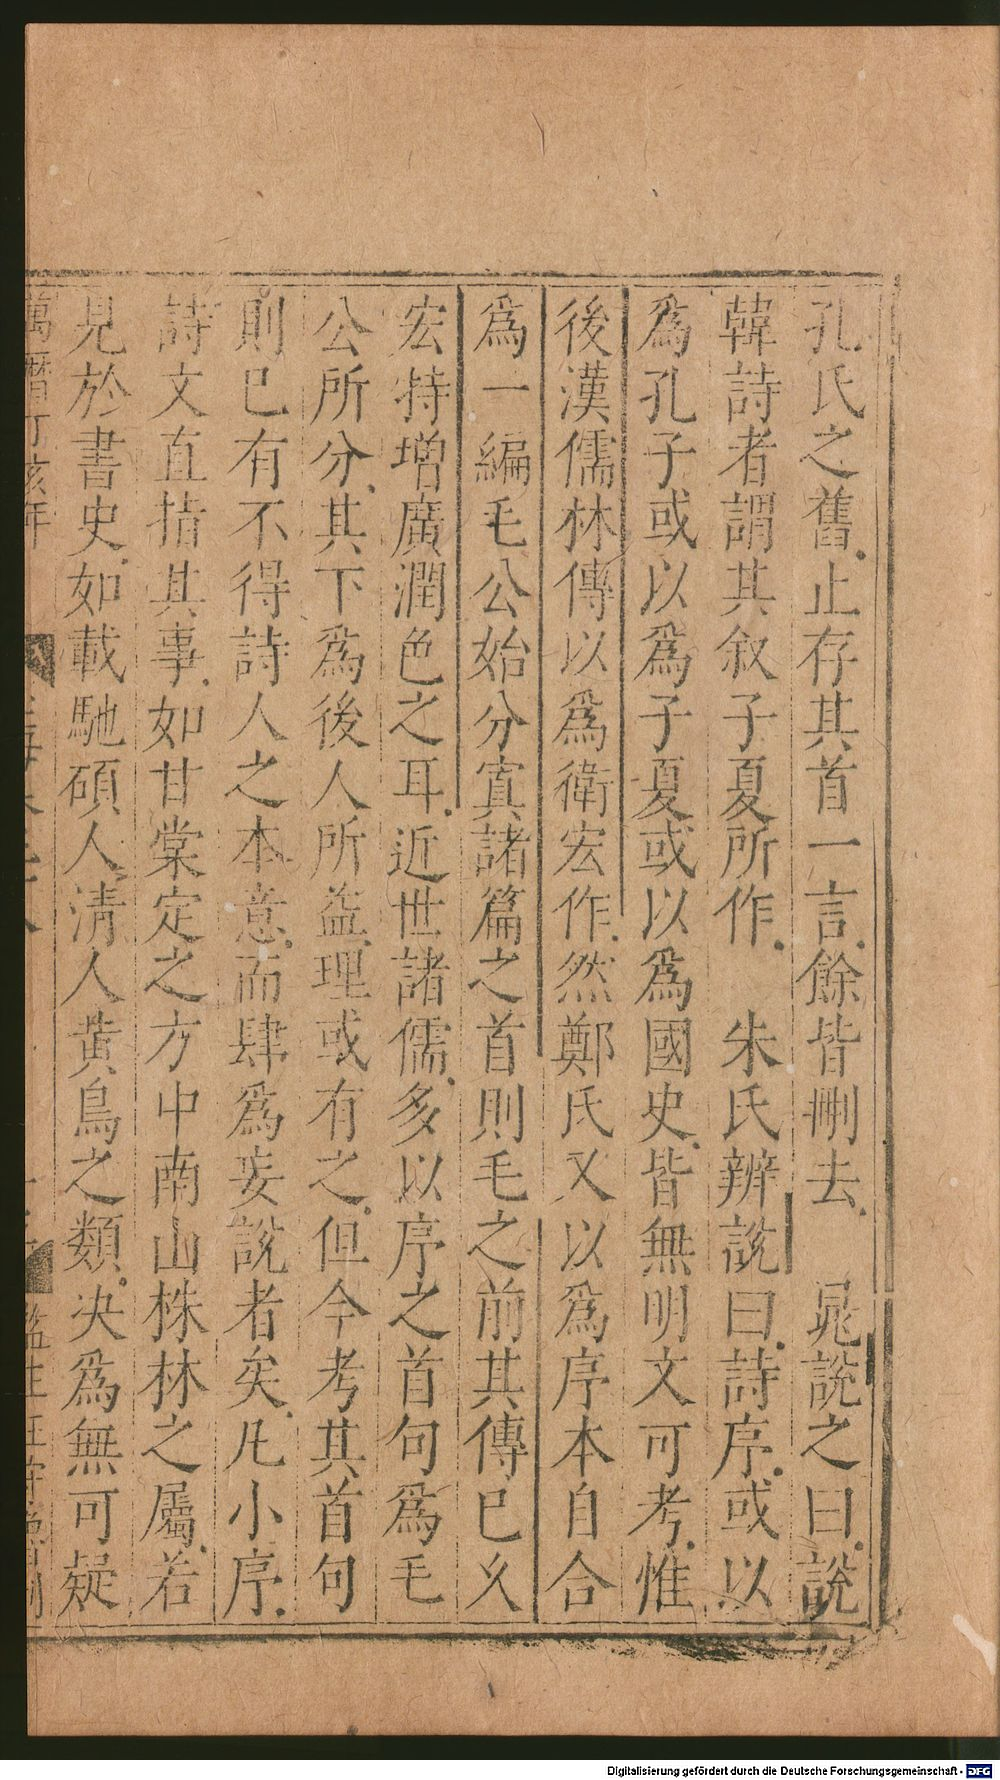 孔氏之舊止存其首一言餘皆刪去　晁說之曰說
韓詩者謂其叙子夏所作　朱氏辨說曰詩序或以
為孔子或以為子夏或以為國史皆無明文可考惟
後漢儒林傳以為衛宏作然鄭氏又以為序本自合
為一編毛公始分寘諸篇之首則毛之前其傳已久
宏特增廣潤色之耳近世諸儒多以序之首句為毛
公所分其下為後人所益理或有之但今考其首句
則已有不得詩人之本意而肆為妄說者矣凡小序
詩文直指其事如甘棠定之方中南山株林之屬若
見於書史如載馳碩人清人黃鳥之類決為無可疑
萬曆丁亥年
Digitalisierung gefördert durch die Deutsche Forschungsgemeinschaft - DFG